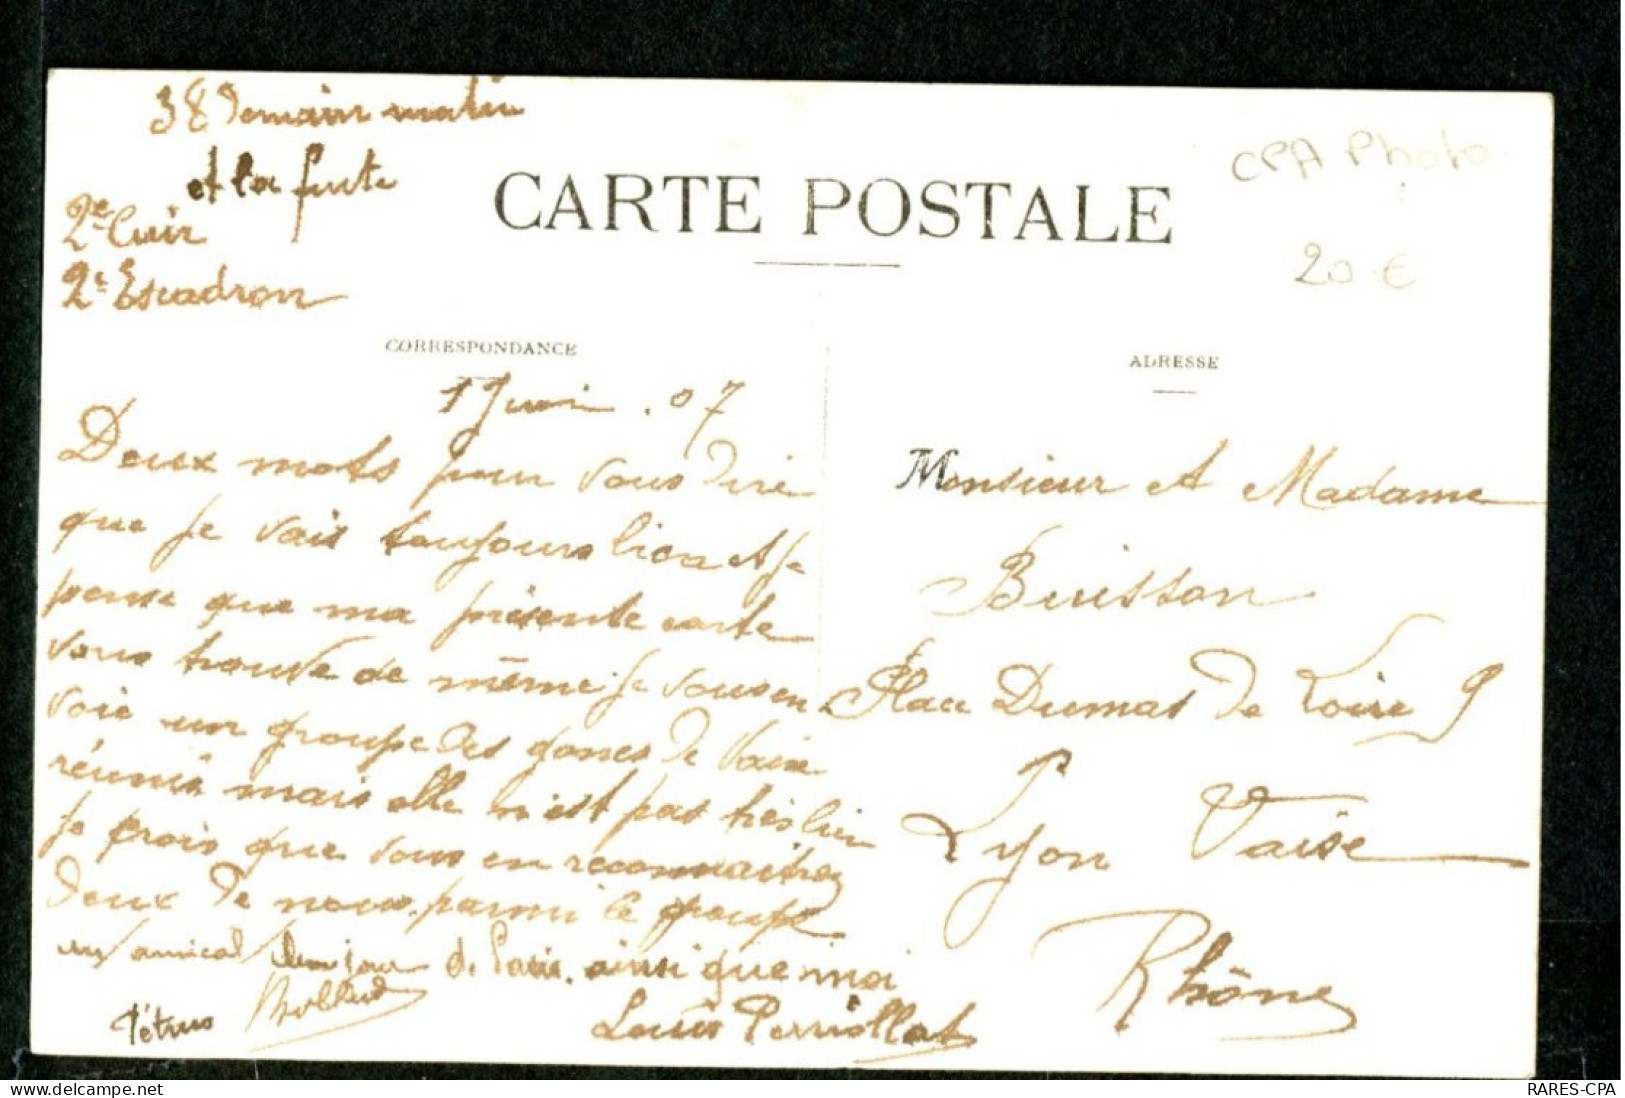 38 Demain matin
et la fuite
2e Cuir
2e Escadron
CARTE POSTALE
CPA Photo
20 €
CORRESPONDANCE
ADRESSE
1 Juin . 07
Deux mots pour vous dire
que je vais toujours bien et je
pense que ma présente carte
vous trouve de même je vous en
voie un groupe des gones de Vaise
réunis mais elle n'est pas très bien
je crois que vous en reconnaitrez
deux de nous parmi le groupe
un amical bonjour de Paris. ainsi que moi
Pétrus
Louis Perriollat
Monsieur et Madame
Buisson
Place Dumas de Loire 9
Lyon Vaise
Rhône
RARES-CPA